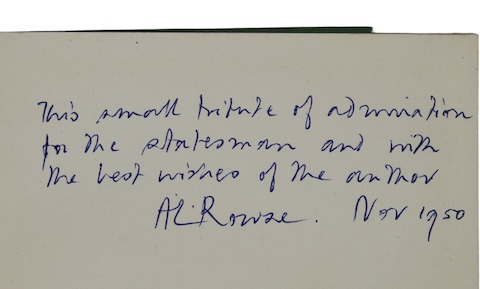 This small tribute of admiration
for the statesman and with
the best wishes of the author
A L Rowse. Nov 1950